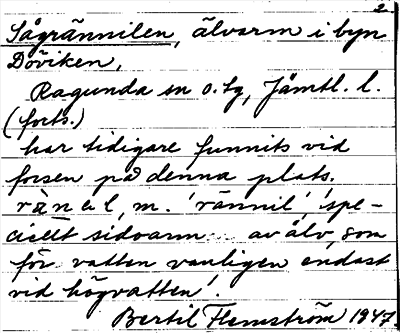 2.
Sågrännilen, älvarm i byn
Döviken,
Ragunda sn o. tg, Jämtl. l.
(forts.)
har tidigare funnits vid
forsen på denna plats.
rànel, m. 'rännil' 'spe-
ciellt sidoarm av älv, som
för vatten vanligen endast
vid högvatten'.
Bertil Flemström 1947